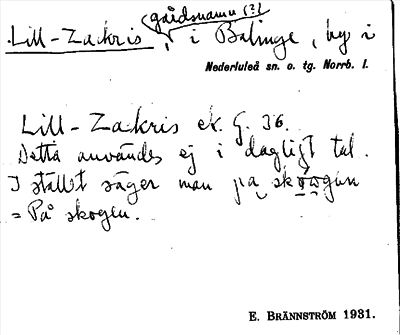 (gårdsnamn (?)
Lill-Zakris, i Balinge, by i
Nederluleå sn. o. tg. Norrb. l.
Lill-Zakris ek. G. 36.
Detta användes ej i dagligt tal.
I stället säger man pa skogen
= På skogen.
E. BRÄNNSTRÖM 1931.